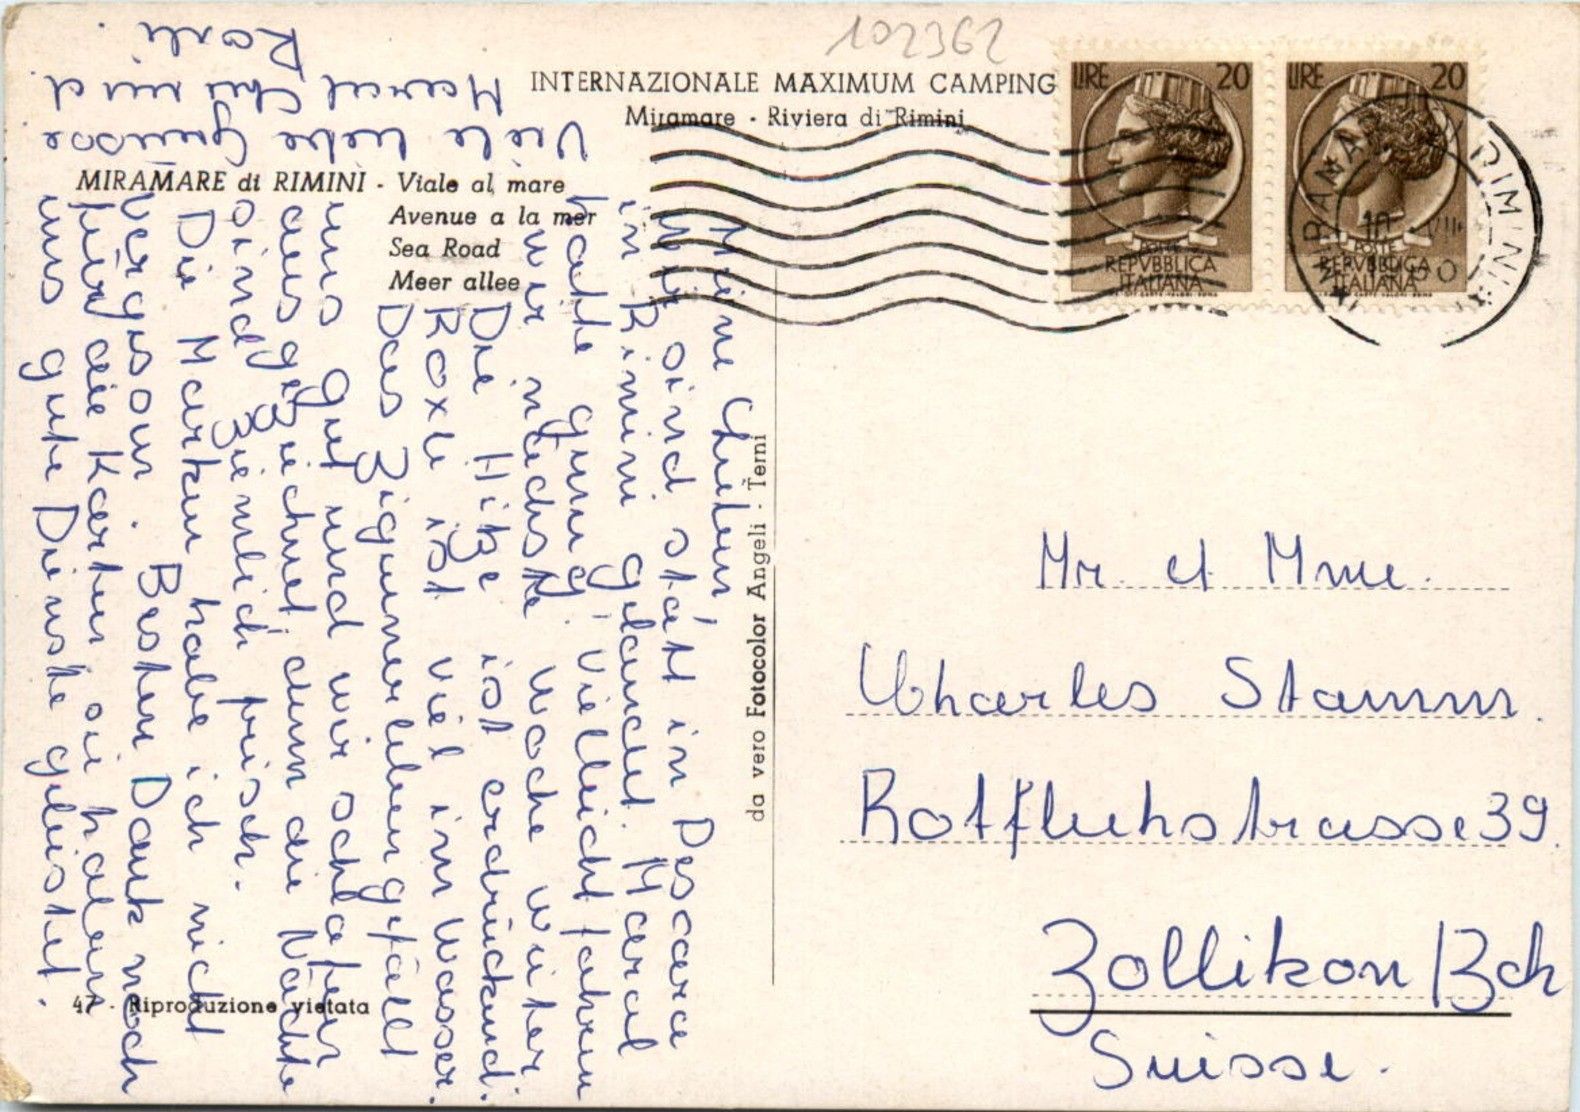 102362
INTERNAZIONALE MAXIMUM CAMPING
Miramare - Riviera di Rimini
MIRAMARE di RIMINI - Viale al mare
Avenue a la mer
Sea Road
Meer allee
LIRE 20
POSTE
REPVBBLICA
ITALIANA
LIRE 20
POSTE
REPVBBLICA
ITALIANA
Meine
Wir sind statt in Pescara
in Rimini gelandet. Marcel
hatte genug. Vielleicht fahren
wir nächste Woche weiter.
Die Hitze ist erdrückend.
Roxli ist viel im Wasser.
Das Zigeunerleben gefällt
uns gut und wir schlafen
ausgezeichnet, denn die Nächte
sind ziemlich frisch.
Die Marken habe ich nicht
vergessen. Besten Dank noch
für die Karten sie haben
uns gute Dienste geleistet.
Viele liebe Grüsse
Marcel und
Roxli.
da vero Fotocolor Angeli - Terni
47 - Riproduzione vietata
Mr. et Mme.
Charles Stamm.
Rotfluhstrasse 39.
Zollikon/Zch
Suisse.